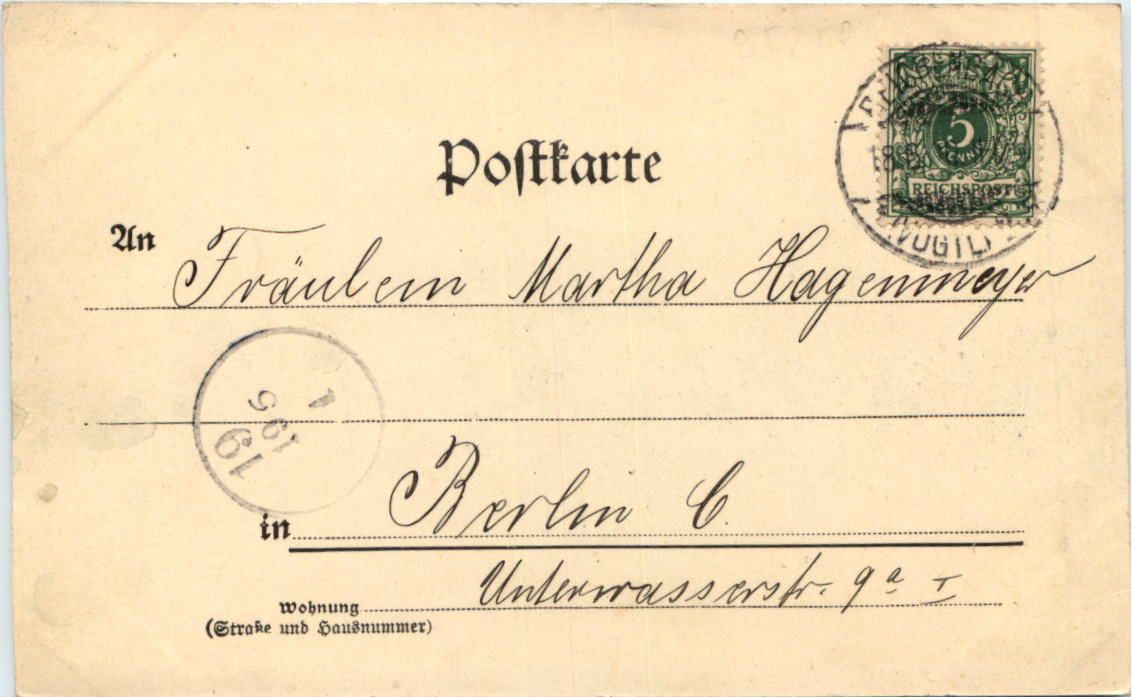 Postkarte
5
PFENNIG
REICHSPOST
(VOGTL)
An Fräulein Martha Hagenmeyer
1
19 5
19
in Berlin C.
Unterwasserstr. 9a I
Wohnung
(Straße und Hausnummer)